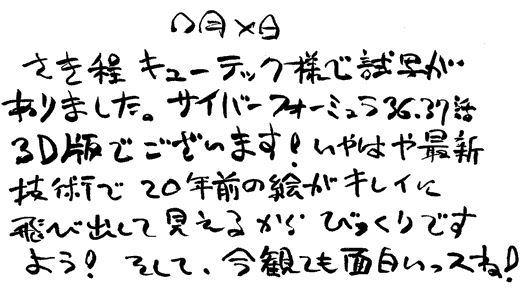 〇月×日
さき程 キューテック様で試写が
ありました。サイバーフォーミュラ36.37話
3D版でございます!いやはや最新
技術で 20年前の絵がキレイに
飛び出して見えるから びっくりです
よう! そして、今観ても面白いっスね!